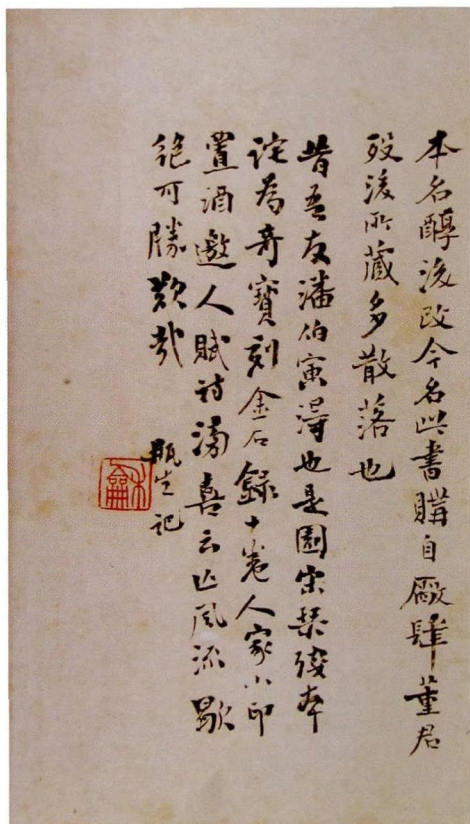 本名醇後改今名此書購自廠肆董君
歿後所藏多散落也
昔吾友潘伯寅得也是園宋槧殘本
詫為奇寶刻金石錄十卷人家小印
置酒邀人賦詩滂喜云亡風流歇
絕可勝歎哉
瓶生記